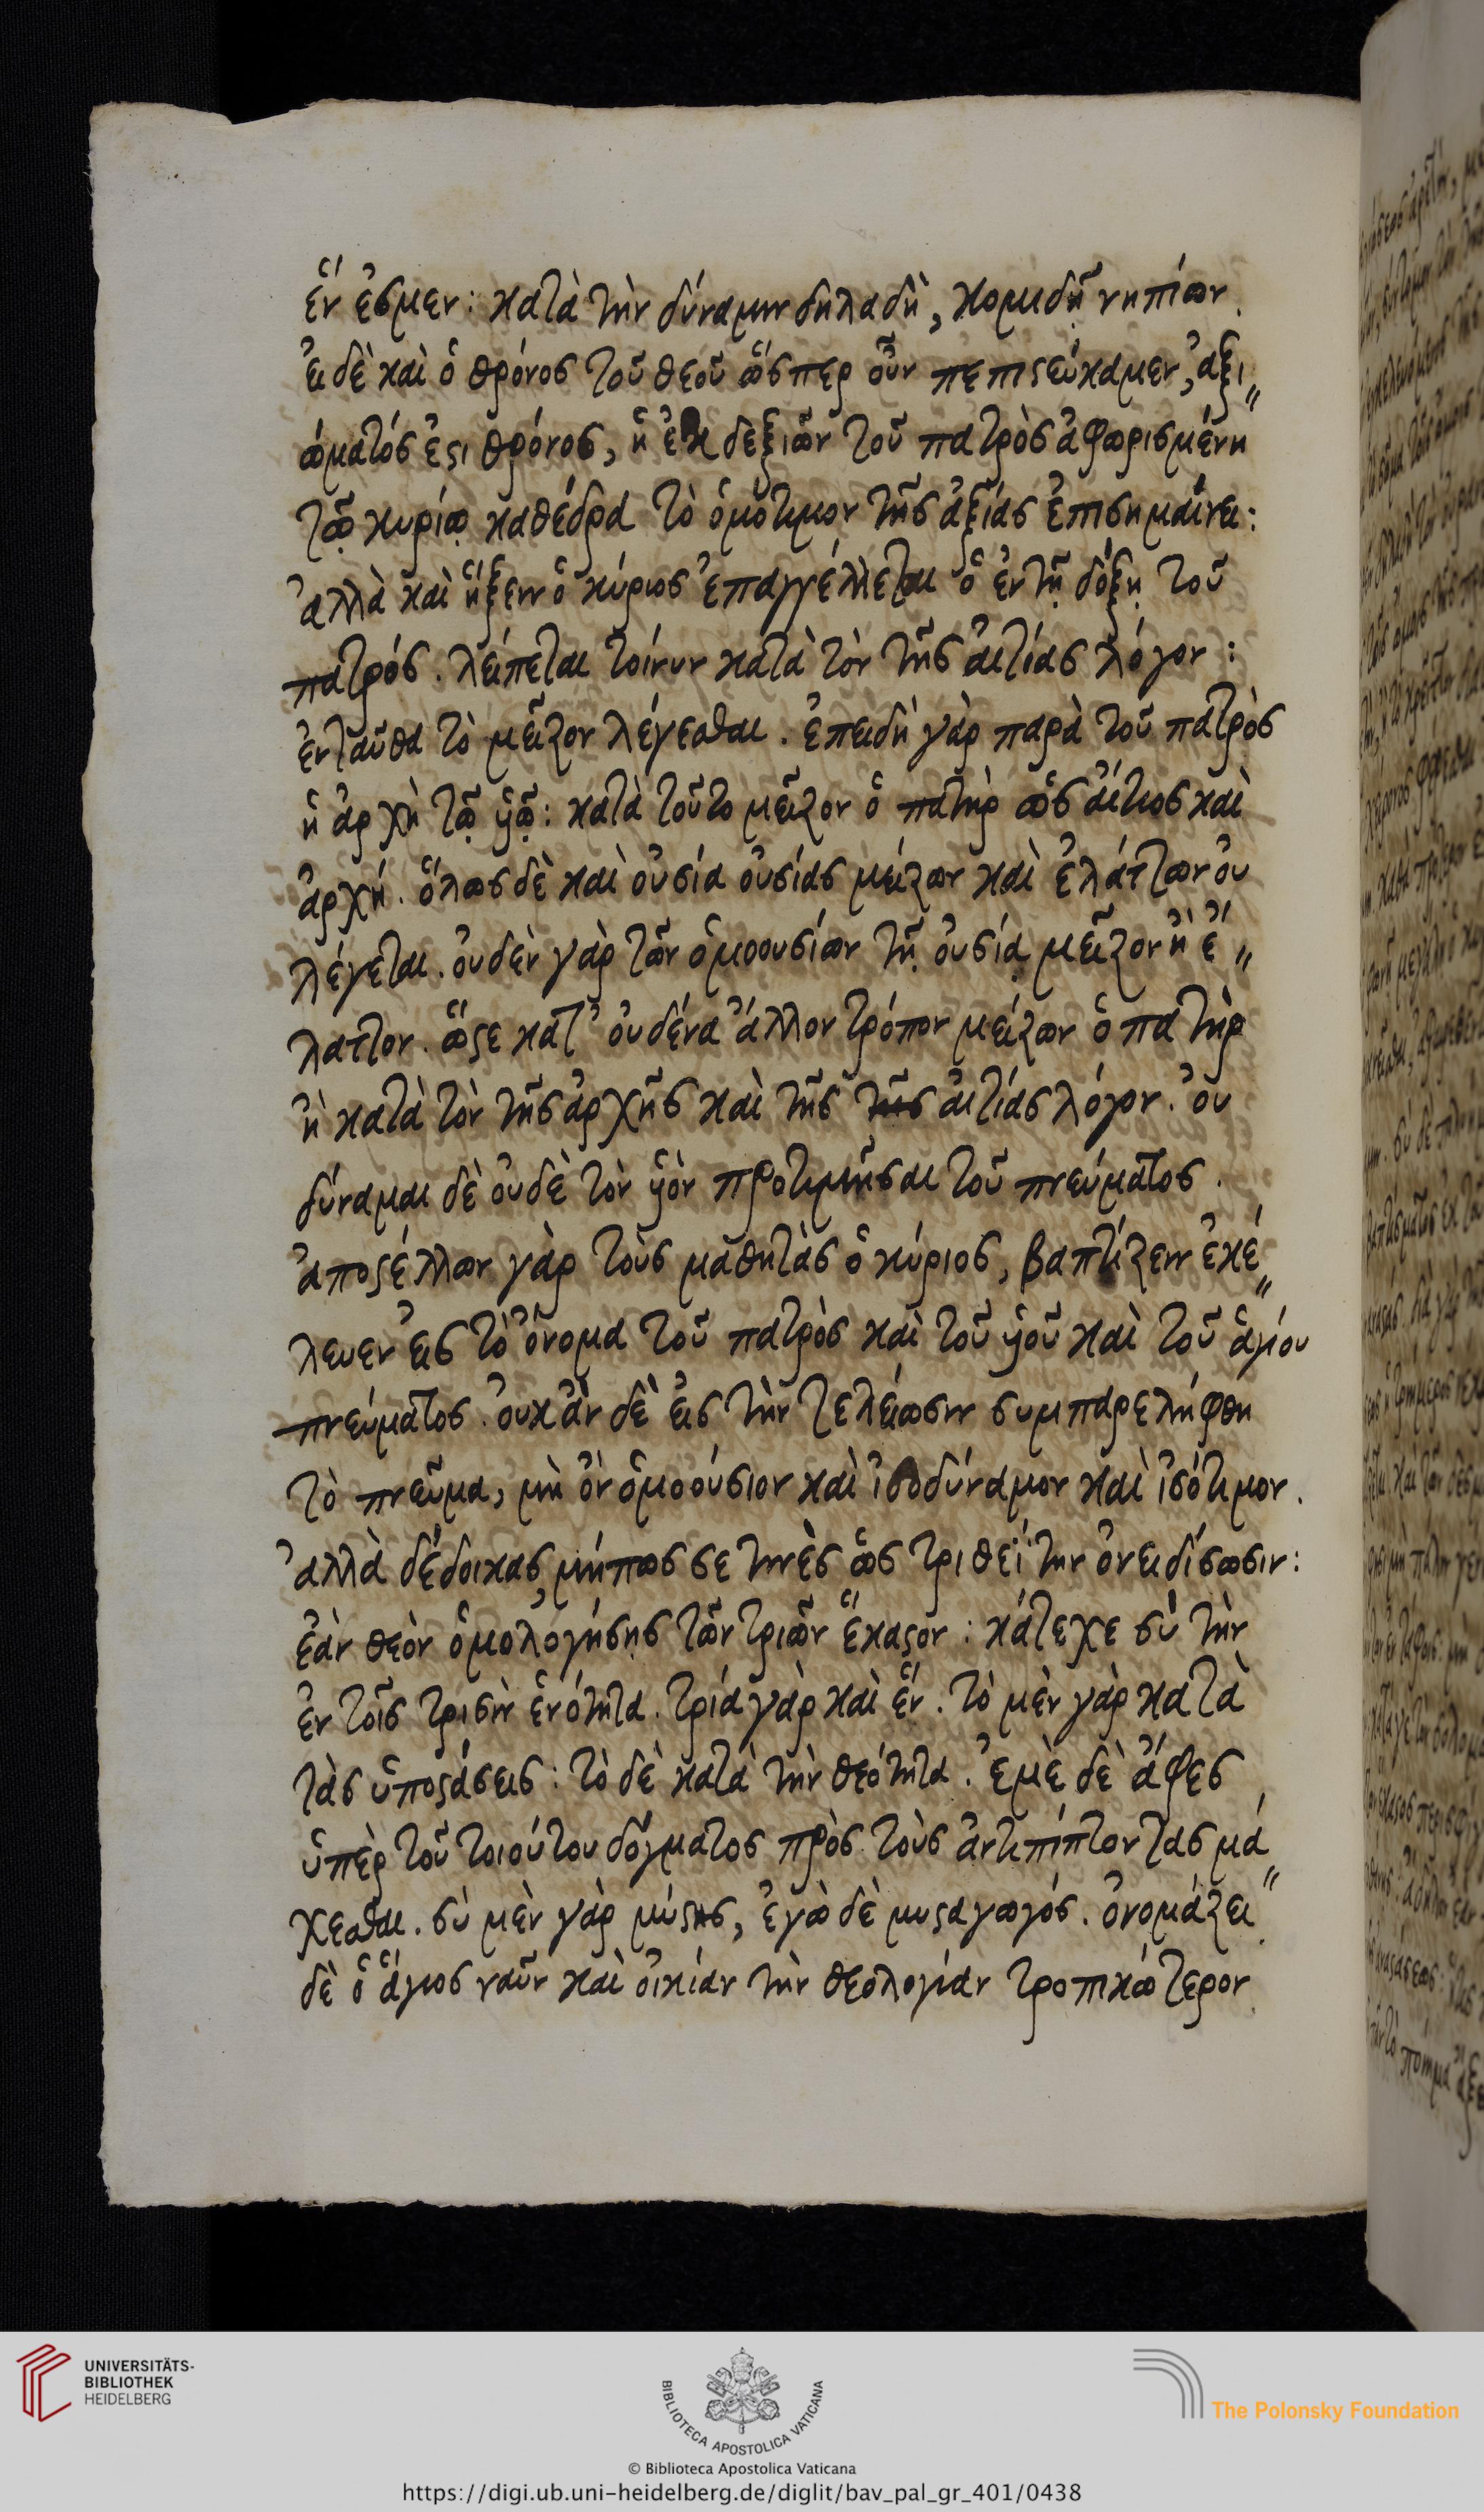 ἕν ἐσμεν: κατὰ τὴν δύναμιν δηλαδὴ, κομιδῆ νηπίων.
ἐι δὲ καὶ ὁ θρόνος τοῦ θεοῦ ὥσπερ οὖν πεπιστεύκαμεν, ἀξι〃
ώματός ἐστι θρόνος, ἡ ἐκ δεξιῶν τοῦ πατρὸς ἀφωρισμένη
τῶ κυρίω καθέδρα τὸ ὁμότιμον τῆς ἀξίας ἐπισημαίνει:
ἀλλὰ καὶ ἥξειν ὁ κύριος ἐπαγγέλλεται ὁ ἐν τῆ δόξη τοῦ
πατρός. λείπεται τοίνυν κατὰ τὸν τῆς αἰτίας λόγον:
ἐνταῦθα τὸ μεῖζον λέγεσθαι. ἐπειδὴ γὰρ παρὰ τοῦ πατρὸς
ἡ ἀρχὴ τῶ ὑῶ: κατὰ τοῦτο μεῖζον ὁ πατὴρ ὡς αἴτιος καὶ
ἀρχή. ὅλως δὲ καὶ οὐσία οὐσίας μείζων καὶ ἐλάττων οὐ
λέγεται. οὐδὲν γὰρ τῶν ὁμοουσίων τῆ οὐσία μεῖζον ἢ ἔ〃
λαττον. ὥστε κατ' οὐδένα ἄλλον τρόπον μείζων ὁ πατὴρ
ἢ κατὰ τὸν τῆς ἀρχῆς καὶ τῆς τῆς αἰτίας λόγον. οὐ
δύναμαι δὲ οὐδὲ τὸν ὑὸν προτιμῆσαι τοῦ πνεύματος.
ἀποστέλλων γὰρ τοὺς μαθητὰς ὁ κύριος, βαπτίζειν ἐκέ〃
λευεν εἰς τὸ ὄνομα τοῦ πατρὸς καὶ τοῦ ὑοῦ καὶ τοῦ ἁγίου
πνεύματος. οὐκ ἂν δὲ εἰς τὴν τελείωσιν συμπαρελήφθη
τὸ πνεῦμα, μὴ ὂν ὁμοούσιον καὶ ἰσοδύναμον καὶ ἰσότιμον.
ἀλλὰ δέδοικας, μήπως σε τινὲς ὡς τριθεΐτην ὀνειδίσωσιν:
ἐὰν θεὸν ὁμολογήσης τῶν τριῶν ἕκαστον: κάτεχε σὺ τὴν
ἐν τοῖς τρισὶν ἑνότητα. τρία γὰρ καὶ ἕν. τὸ μὲν γὰρ κατὰ
τὰς ὑποστάσεις: τὸ δὲ κατὰ τὴν θεότητα. ἐμὲ δὲ ἄφες
ὑπὲρ τοῦ τοιούτου δόγματος πρὸς τοὺς ἀντιπίπτοντας μά〃
χεσθαι. σὺ μὲν γὰρ μύστης, ἐγὼ δὲ μυσταγωγός. ὀνομάζει
δὲ ὁ ἅγιος ναῦν καὶ οἰκίαν τὴν θεολογίαν τροπικώτερον
UNIVERSITÄTS-
BIBLIOTHEK
HEIDELBERG
BIBLIOTECA APOSTOLICA VATICANA
© Biblioteca Apostolica Vaticana
The Polonsky Foundation
https://digi.ub.uni-heidelberg.de/diglit/bav_pal_gr_401/0438